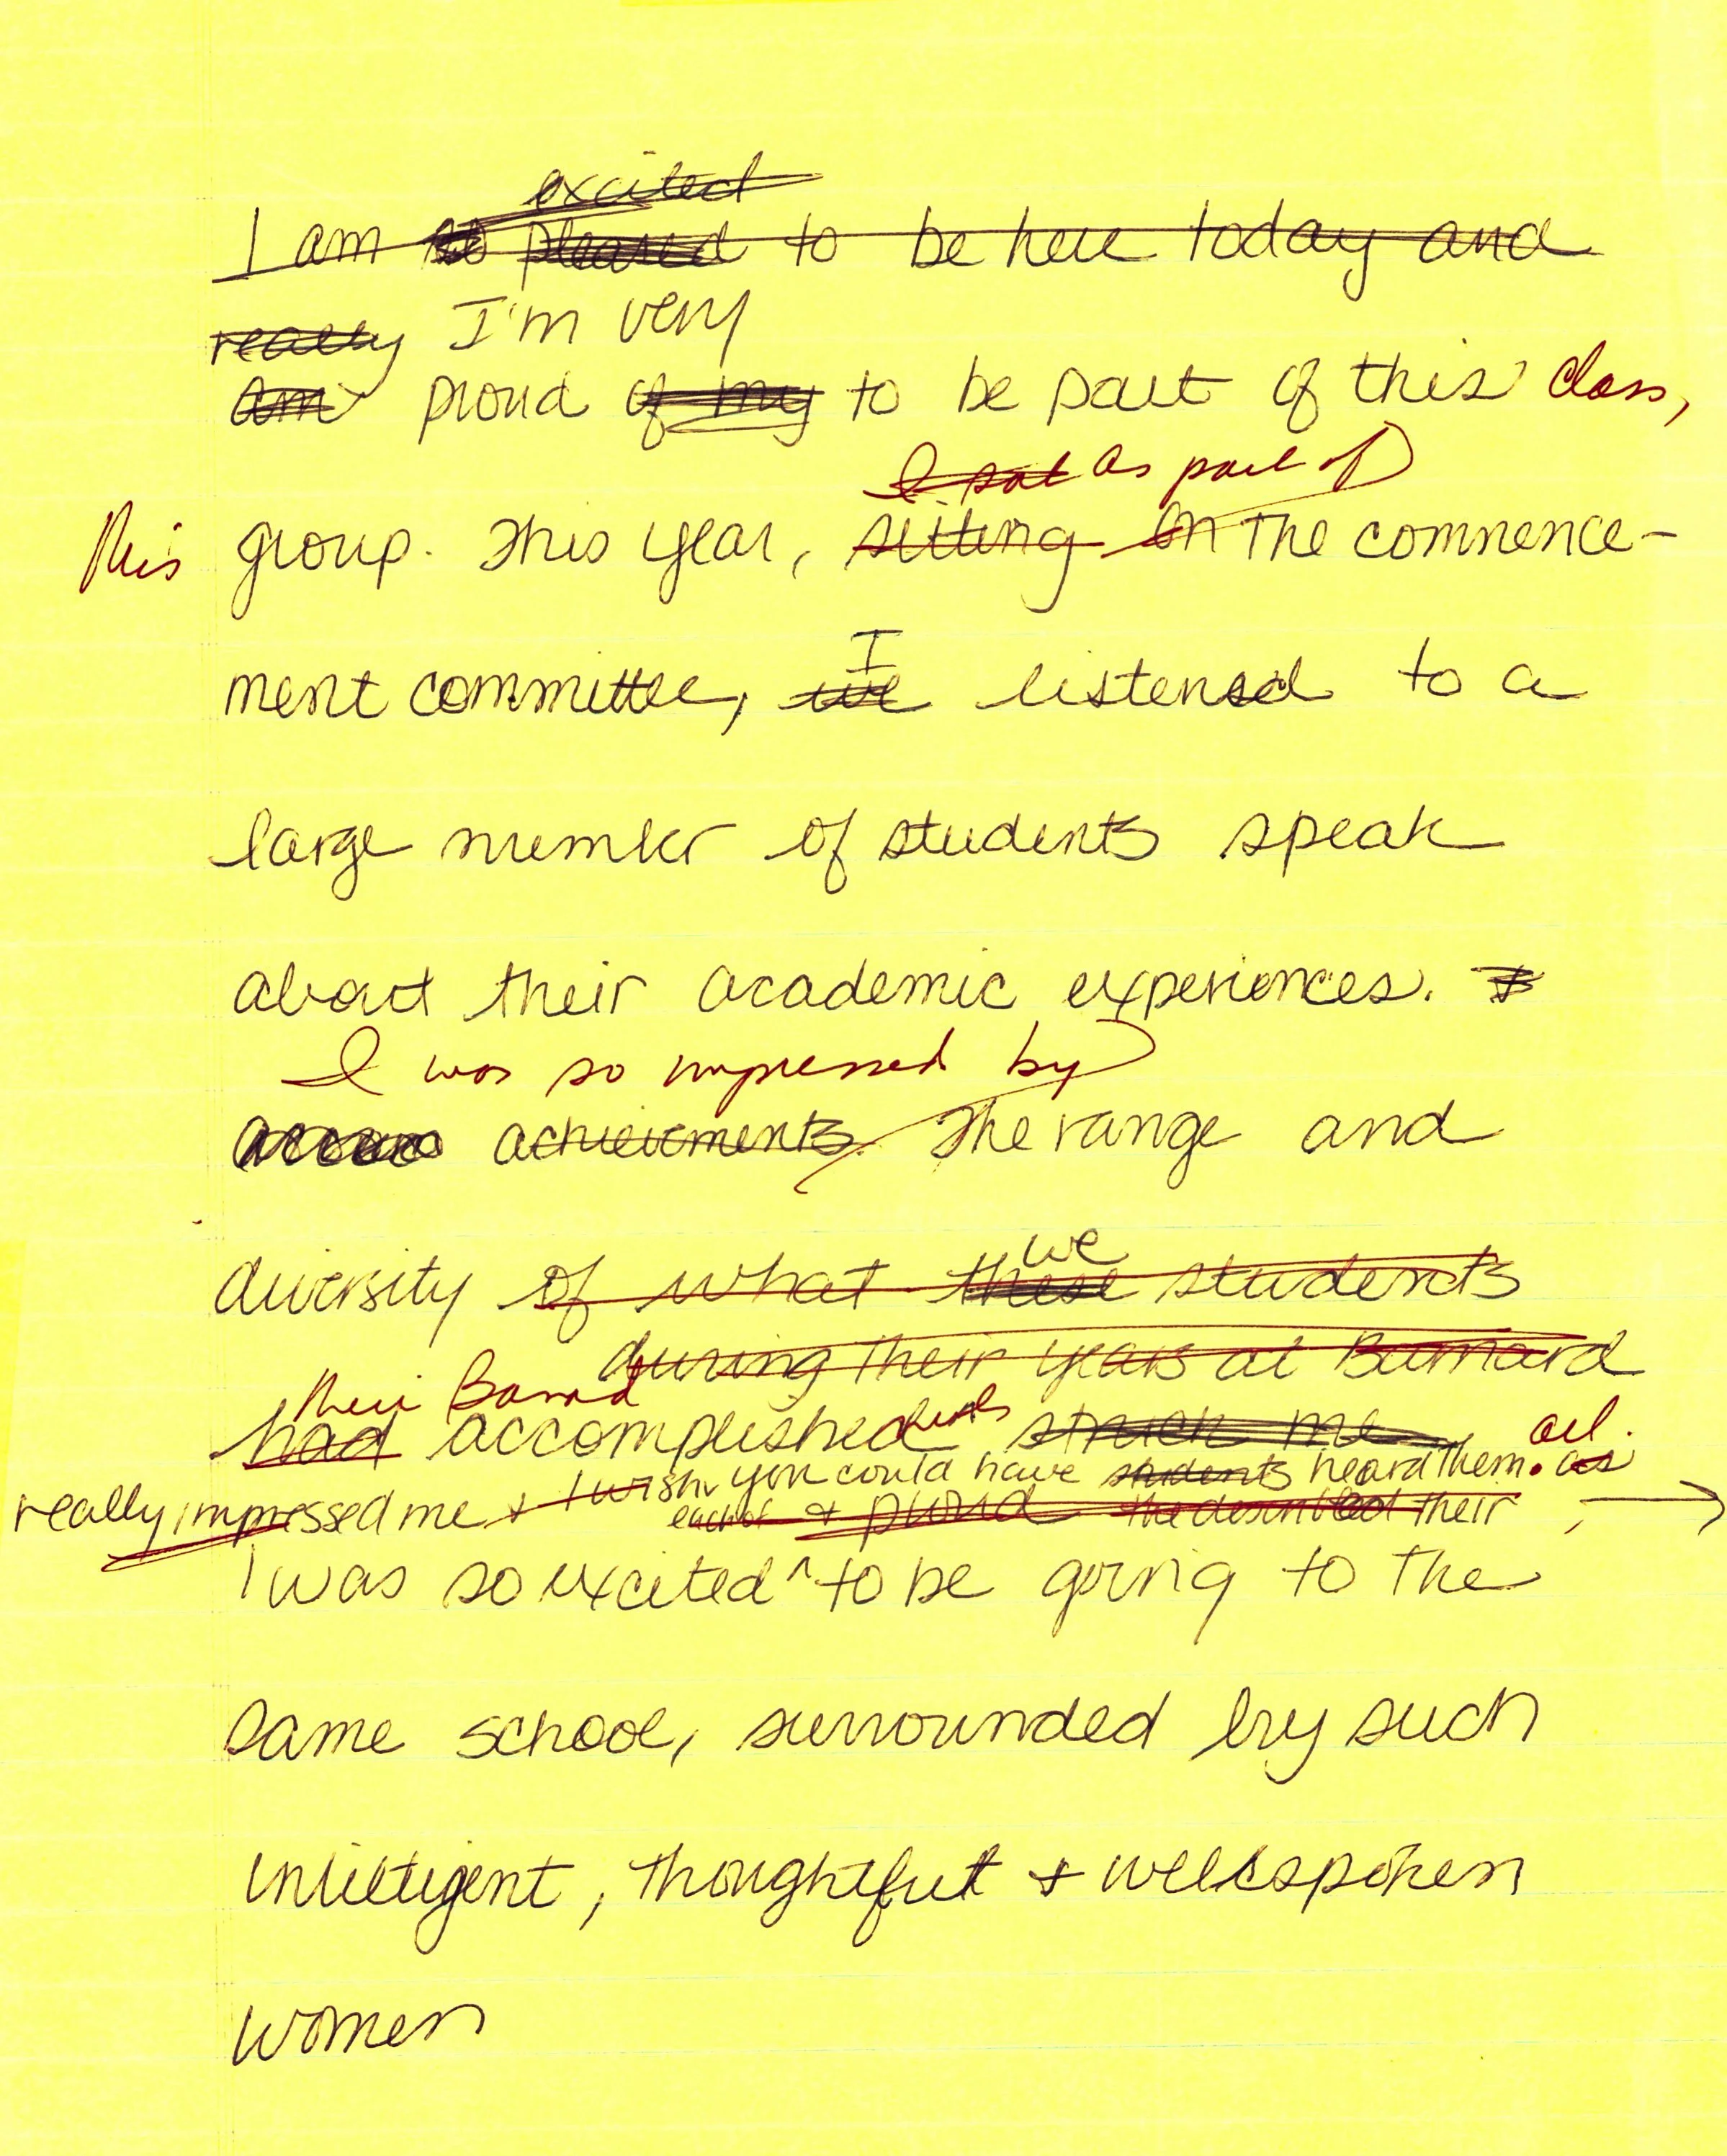 excited
I am so pleased to be here today and
really I'm very
am proud of my to be part of this class,
I sat as part of
this group. This year, sitting on the commence-
I
ment committee, we listened to a
large number of students speak
about their academic experiences.
I was so impressed by
achievements. The range and
we
diversity of what these students
during their years at Barnard
their Barnard
had accomplished struck me all.
I wish you could have students heard them. as
really impressed me + each of + proud the described their
I was so excited ^ to be going to the
same school, surrounded by such
intelligent, thoughtful + wellspoken
women